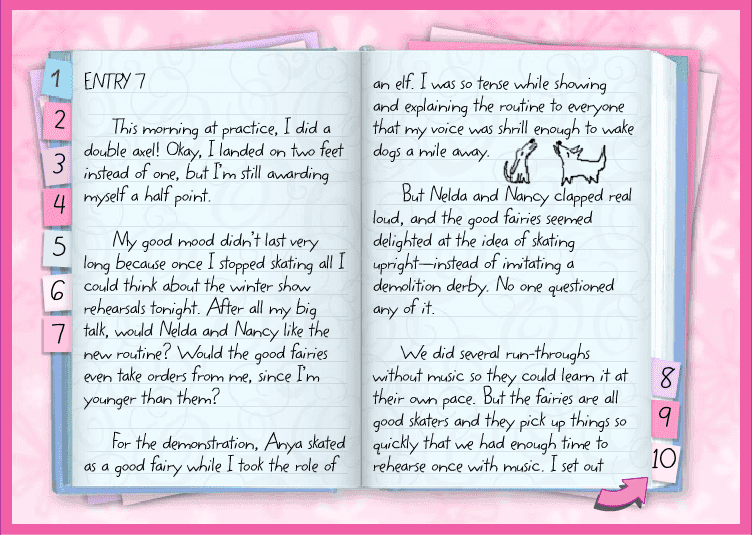 1
2
3
4
5
6
7
ENTRY 7
This morning at practice, I did a
double axel! Okay, I landed on two feet
instead of one, but I'm still awarding
myself a half point.
My good mood didn't last very
long because once I stopped skating all I
could think about the winter show
rehearsals tonight. After all my big
talk, would Nelda and Nancy like the
new routine? Would the good fairies
even take orders from me, since I'm
younger than them?
For the demonstration, Anya skated
as a good fairy while I took the role of
an elf. I was so tense while showing
and explaining the routine to everyone
that my voice was shrill enough to wake
dogs a mile away.
But Nelda and Nancy clapped real
loud, and the good fairies seemed
delighted at the idea of skating
upright—instead of imitating a
demolition derby. No one questioned
any of it.
We did several run-throughs
without music so they could learn it at
their own pace. But the fairies are all
good skaters and they pick up things so
quickly that we had enough time to
rehearse once with music. I set out
8
9
10